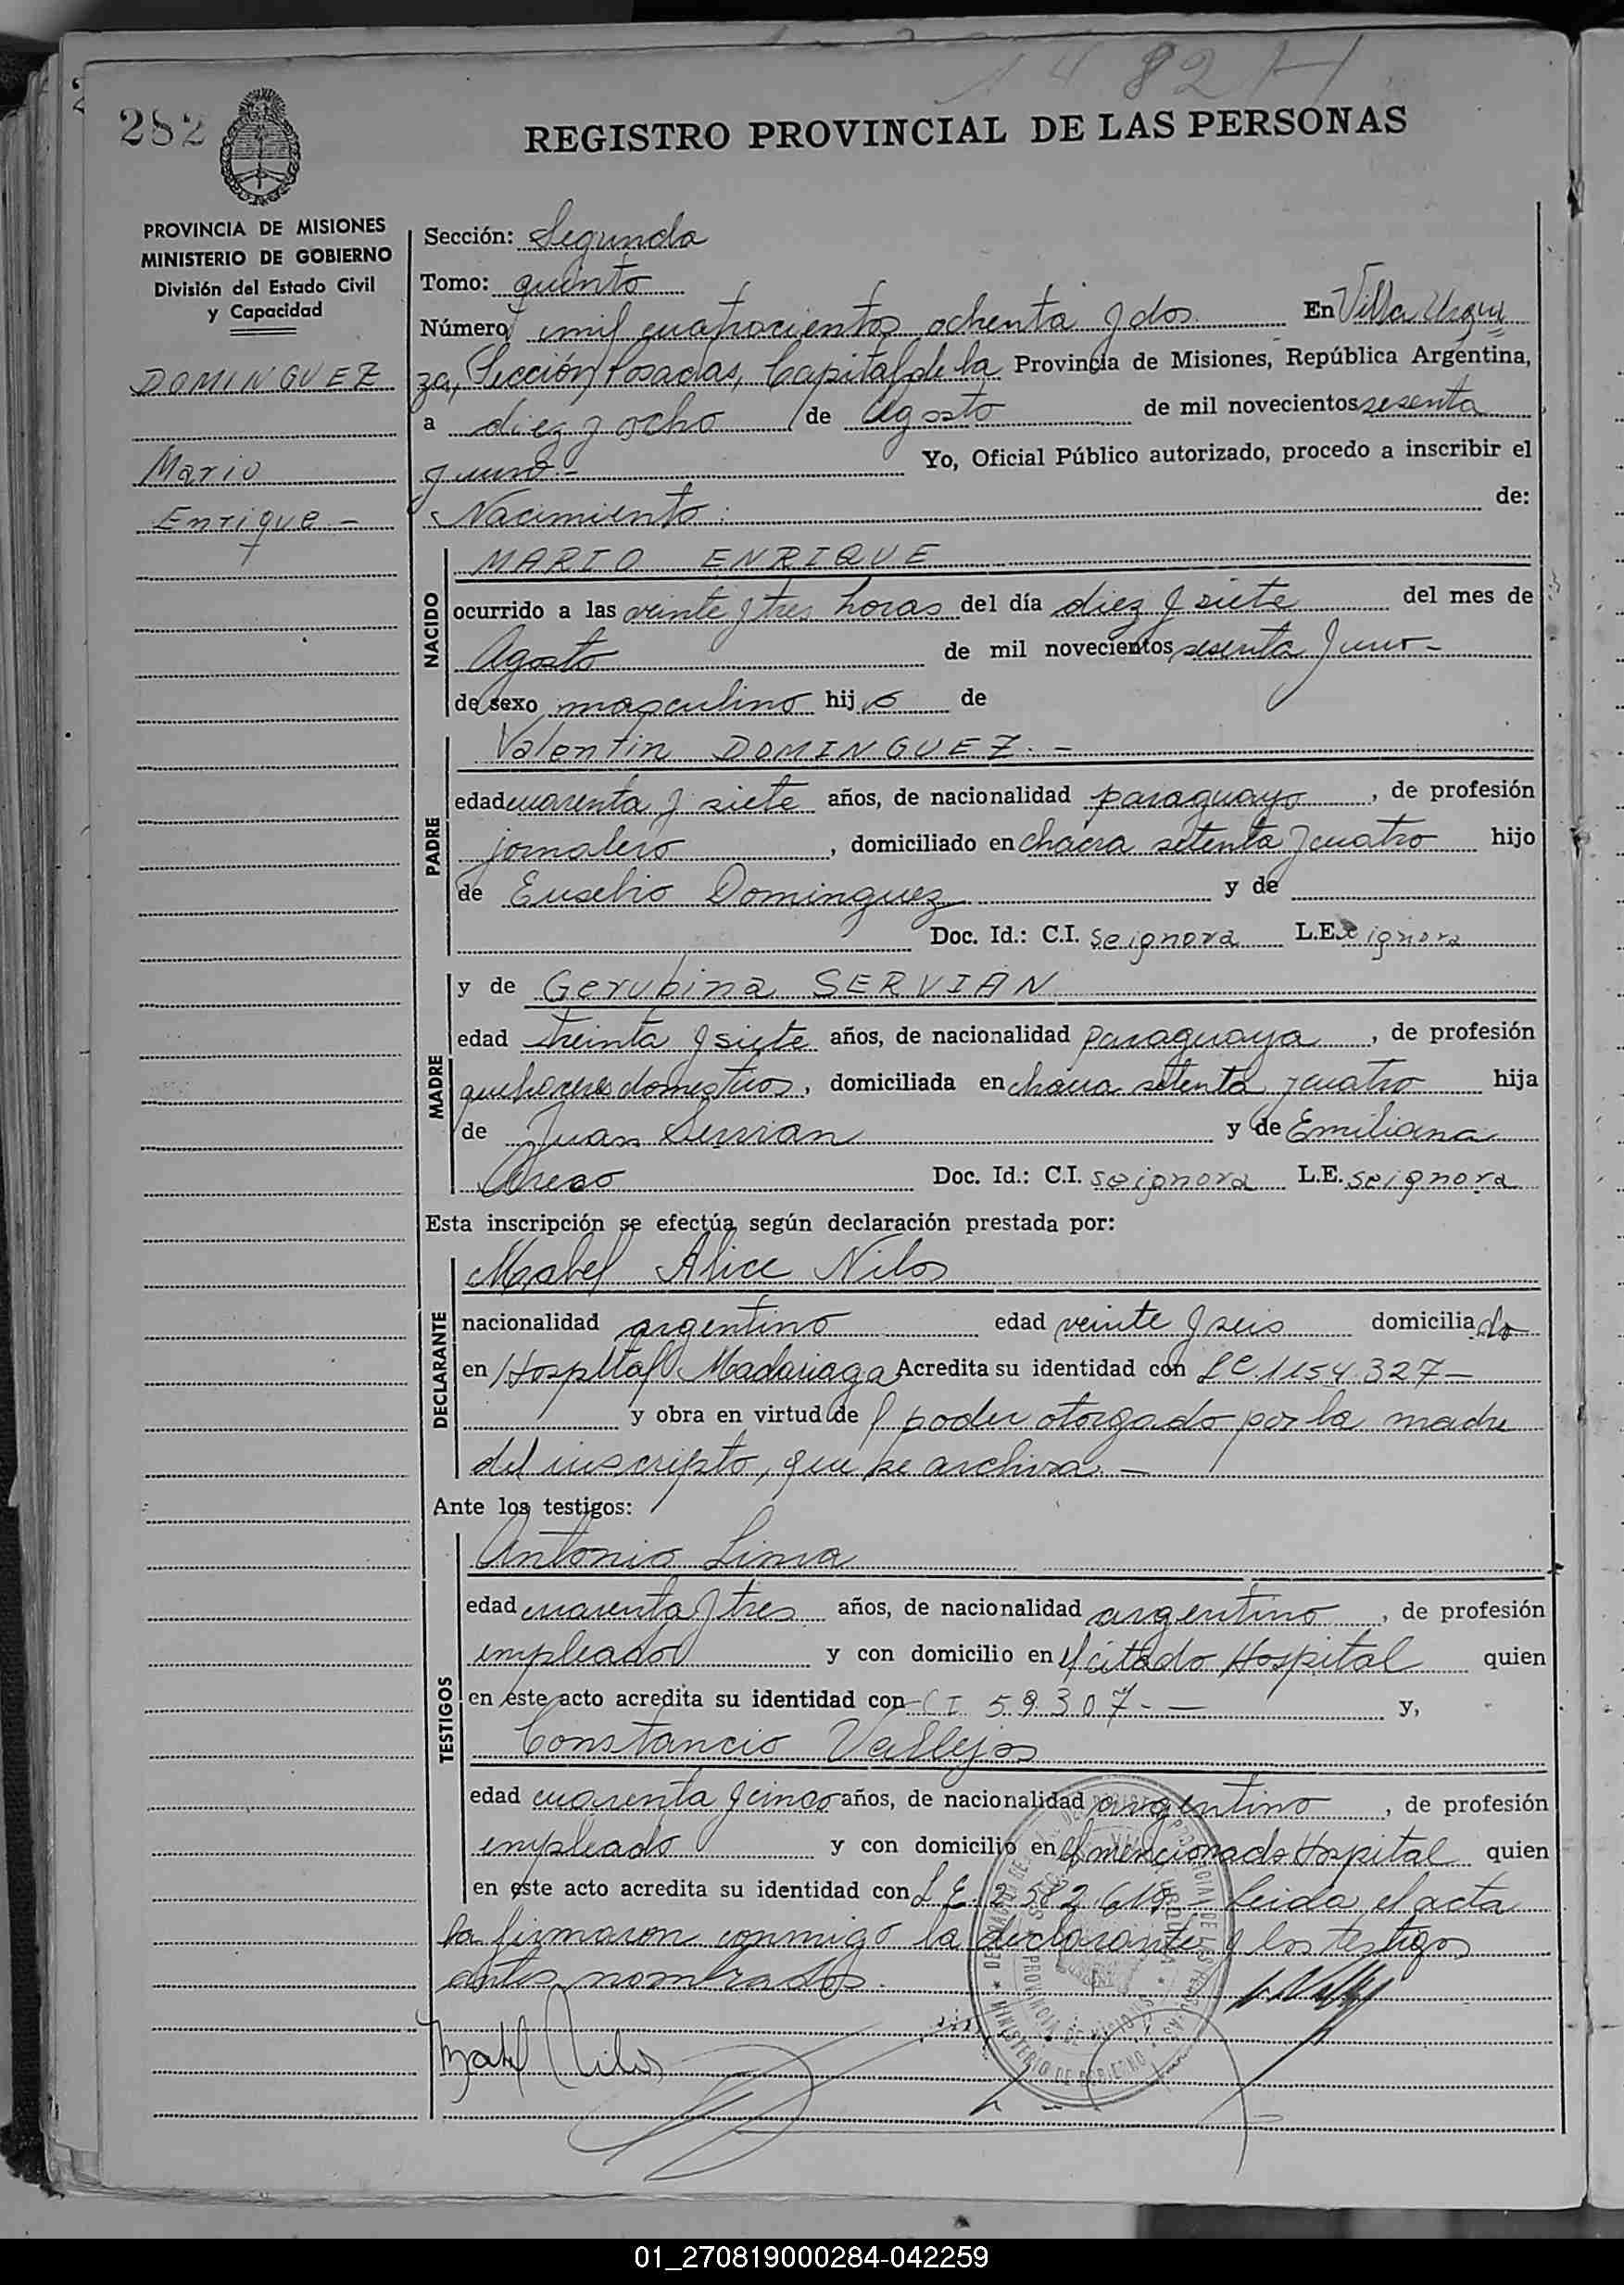 1482 H
282
REGISTRO PROVINCIAL DE LAS PERSONAS
PROVINCIA DE MISIONES
MINISTERIO DE GOBIERNO
División del Estado Civil
y Capacidad
DOMINGUEZ
Mario
Enrique -
Sección: Segunda
Tomo: quinto
Número mil cuatrocientos ochenta y dos En Villa Urqui
za, Sección Posadas, Capital de la Provincia de Misiones, República Argentina,
a diez y ocho de Agosto de mil novecientos sesenta
y uno - Yo, Oficial Público autorizado, procedo a inscribir el
Nacimiento de:
NACIDO
MARIO ENRIQUE
ocurrido a las veinte y tres horas del día diez y siete del mes de
Agosto de mil novecientos sesenta y uno -
de sexo masculino hijo de
PADRE
Valentin DOMINGUEZ. -
edad cuarenta y siete años, de nacionalidad paraguayo, de profesión
jornalero, domiciliado en chacra setenta y cuatro hijo
de Eusebio Dominguez y de
Doc. Id.: C.I. se ignora L.E. se ignora
MADRE
y de Gerubina SERVIAN
edad treinta y siete años, de nacionalidad paraguaya, de profesión
quehaceres domesticos, domiciliada en chacra setenta y cuatro hija
de Juan Servian y de Emiliana
Doc. Id.: C.I. se ignora L.E. se ignora
Esta inscripción se efectúa según declaración prestada por:
DECLARANTE
Mabel Alice Nilos
nacionalidad argentino edad veinte y seis domiciliado
en Hospital Madariaga Acredita su identidad con LC. 1154.327 -
y obra en virtud de poder otorgado por la madre
del inscripto, que se archiva. -
Ante los testigos:
TESTIGOS
Antonio Lima
edad cuarenta y tres años, de nacionalidad argentino, de profesión
empleado y con domicilio en el citado Hospital quien
en este acto acredita su identidad con CI 59307 - y,
Constancio Vallejos
edad cuarenta y cinco años, de nacionalidad argentino, de profesión
empleado y con domicilio en el mencionado Hospital quien
en este acto acredita su identidad con L.E. 2.582. Leida el acta
la firmaron conmigo la declarante y los testigos
antes nombrados.
Mabel Nilos
MINISTERIO DE GOBIERNO
PROVINCIA DE MISIONES
01_270819000284-042259